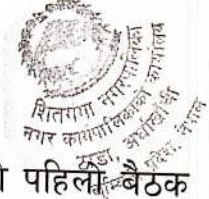 शितगंगा नगरपालिका
नगर कार्यपालिकाको कार्यालय
ठाडा, अर्घाखाँची
प्रदेश, नेपाल
पहिलो बैठक